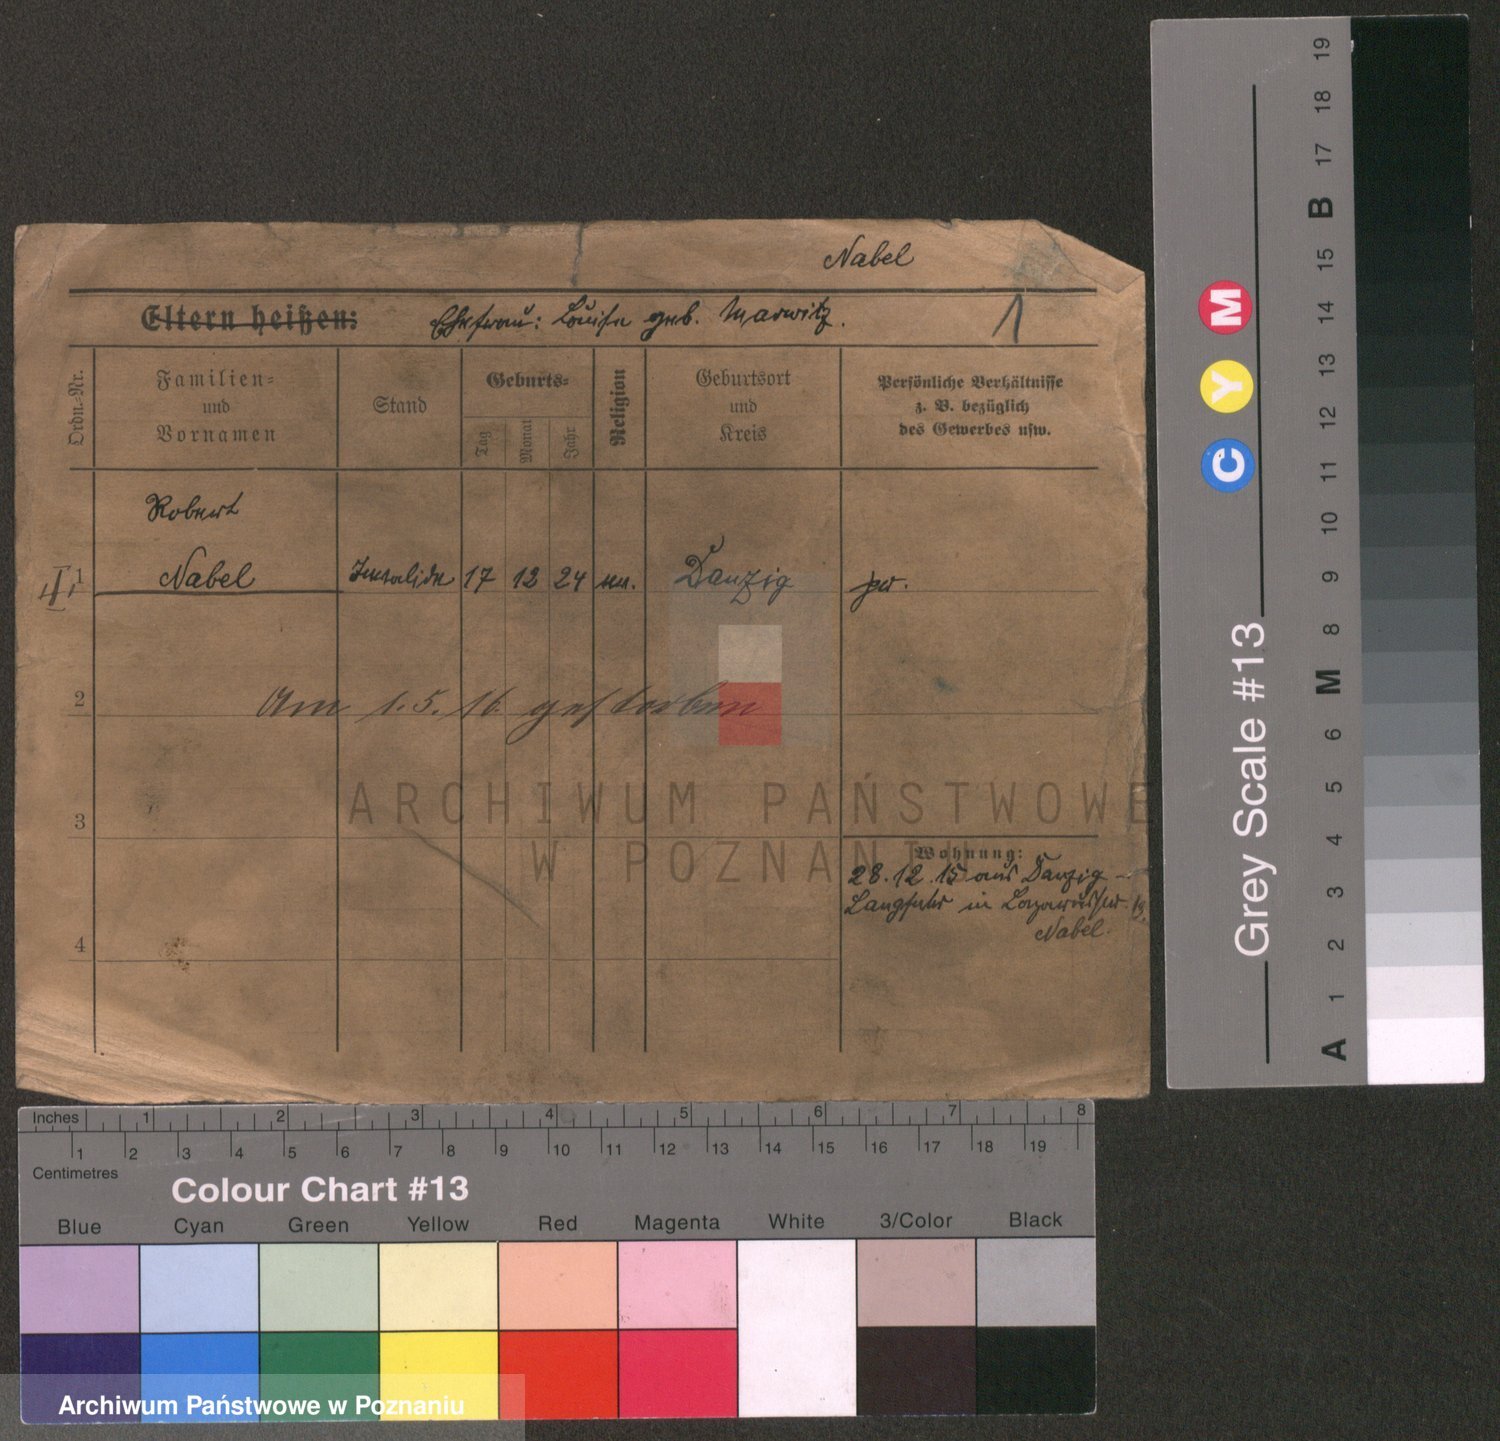 Nabel
Eltern heißen: Ehefrau: Louise geb. Marwitz.
1
Ordn.-Nr.
Familien-
und
Vornamen
Stand
Geburts-
Tag
Monat
Jahr
Religion
Geburtsort
und
Kreis
Persönliche Verhältnisse
z. B. bezüglich
des Gewerbes usw.
Robert
II 1 Nabel Invalide 17 12 24 ev. Danzig pr.
2
Am 1.5.16 gestorben
3
ARCHIWUM PAŃSTWOWE
W POZNANIU
Wohnung:
28.12.15 aus Danzig -
Langfuhr in
Nabel.
4
Inches 1 2 3 4 5 6 7 8
1 2 3 4 5 6 7 8 9 10 11 12 13 14 15 16 17 18 19
Centimetres
Colour Chart #13
Blue Cyan Green Yellow Red Magenta White 3/Color Black
Archiwum Państwowe w Poznaniu
Grey Scale #13
C Y M
A 1 2 3 4 5 6 M 8 9 10 11 12 13 14 15 B 17 18 19